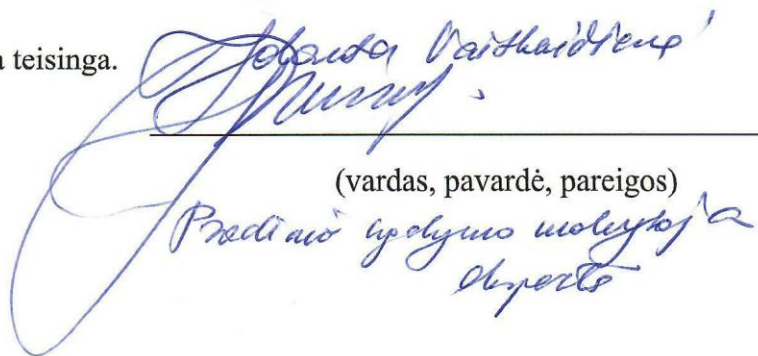 a teisinga.
Jolanta Vaitkaidienė
(vardas, pavardė, pareigos)
Pradinio ugdymo mokytoja
ekspertė